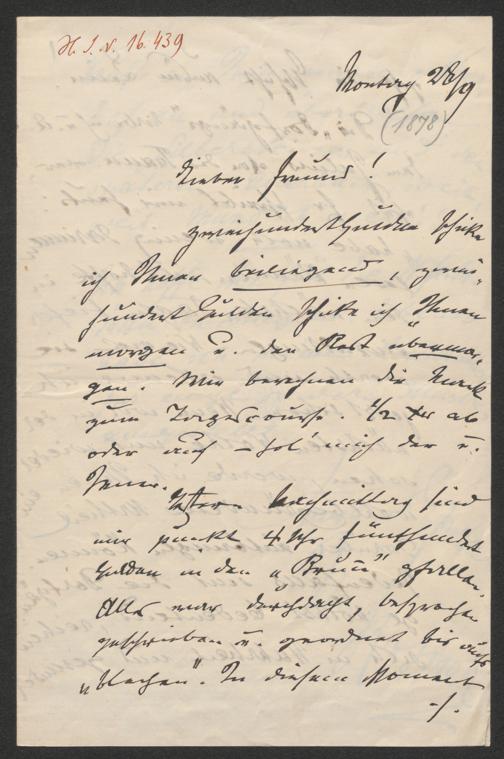 H. I. N. 16.439
Montag 28/9
(1878)
Lieber Freund!
zweihundert Gulden schicke
ich Ihnen beiliegend, zwei-
hundert Gulden schicke ich Ihnen
morgen u. den Rest übermor-
gen. Wir berechnen die Mark
zum Tagescourse. 1/2 xer ab
oder auf – hol' mich der u.
Jener.
Gestern Nachmittag sind
mir punkt 4 Uhr fünfhundert
Gulden in den "Brunn" gefallen.
Alles war durchdacht, besprochen
geschrieben u. geordnet bis aufs
"Blechen". In diesem Moment
-/.